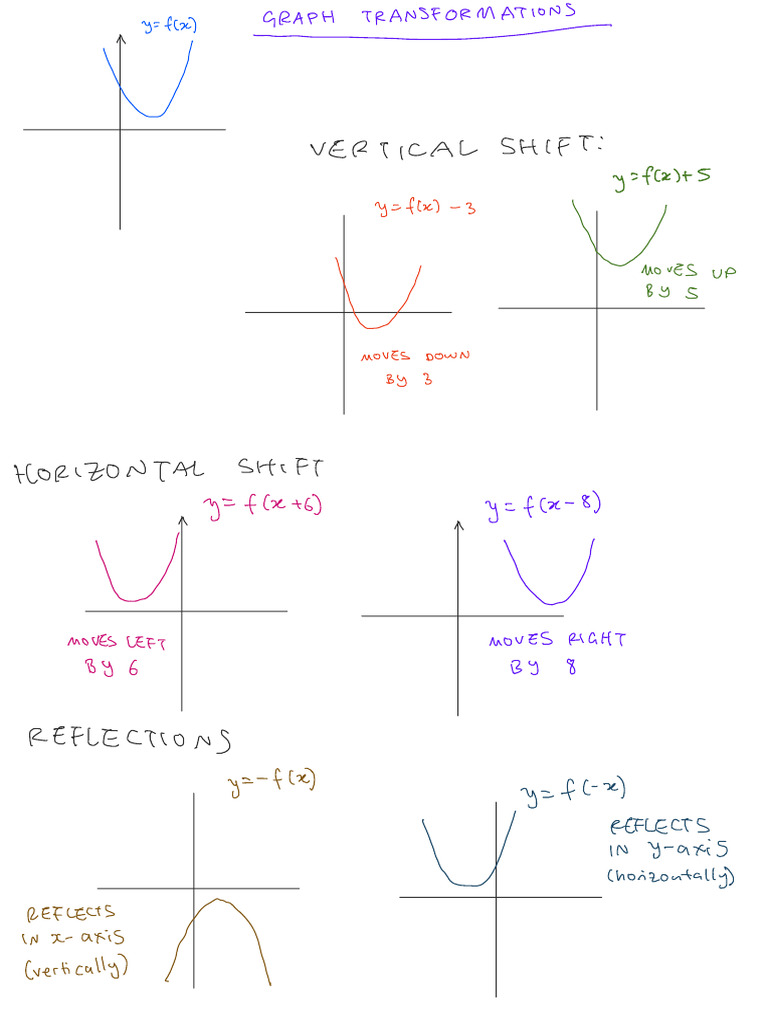 GRAPH TRANSFORMATIONS
y=f(x)
VERTICAL SHIFT:
y=f(x)+5
y=f(x)-3
MOVES UP
BY 5
MOVES DOWN
BY 3
HORIZONTAL SHIFT
y=f(x+6)
y=f(x-8)
MOVES LEFT
BY 6
MOVES RIGHT
BY 8
REFLECTIONS
y=-f(x)
y=f(-x)
REFLECTS
IN y-axis
(horizontally)
REFLECTS
IN x-axis
(vertically)